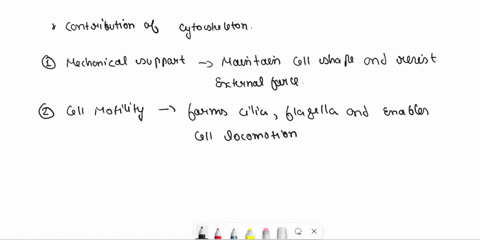 * Contribution of cytoskeleton.
① Mechanical support → Maintain cell shape and resist
External force.
② Cell Motility → forms cilia, flagella and enables
cell locomotion